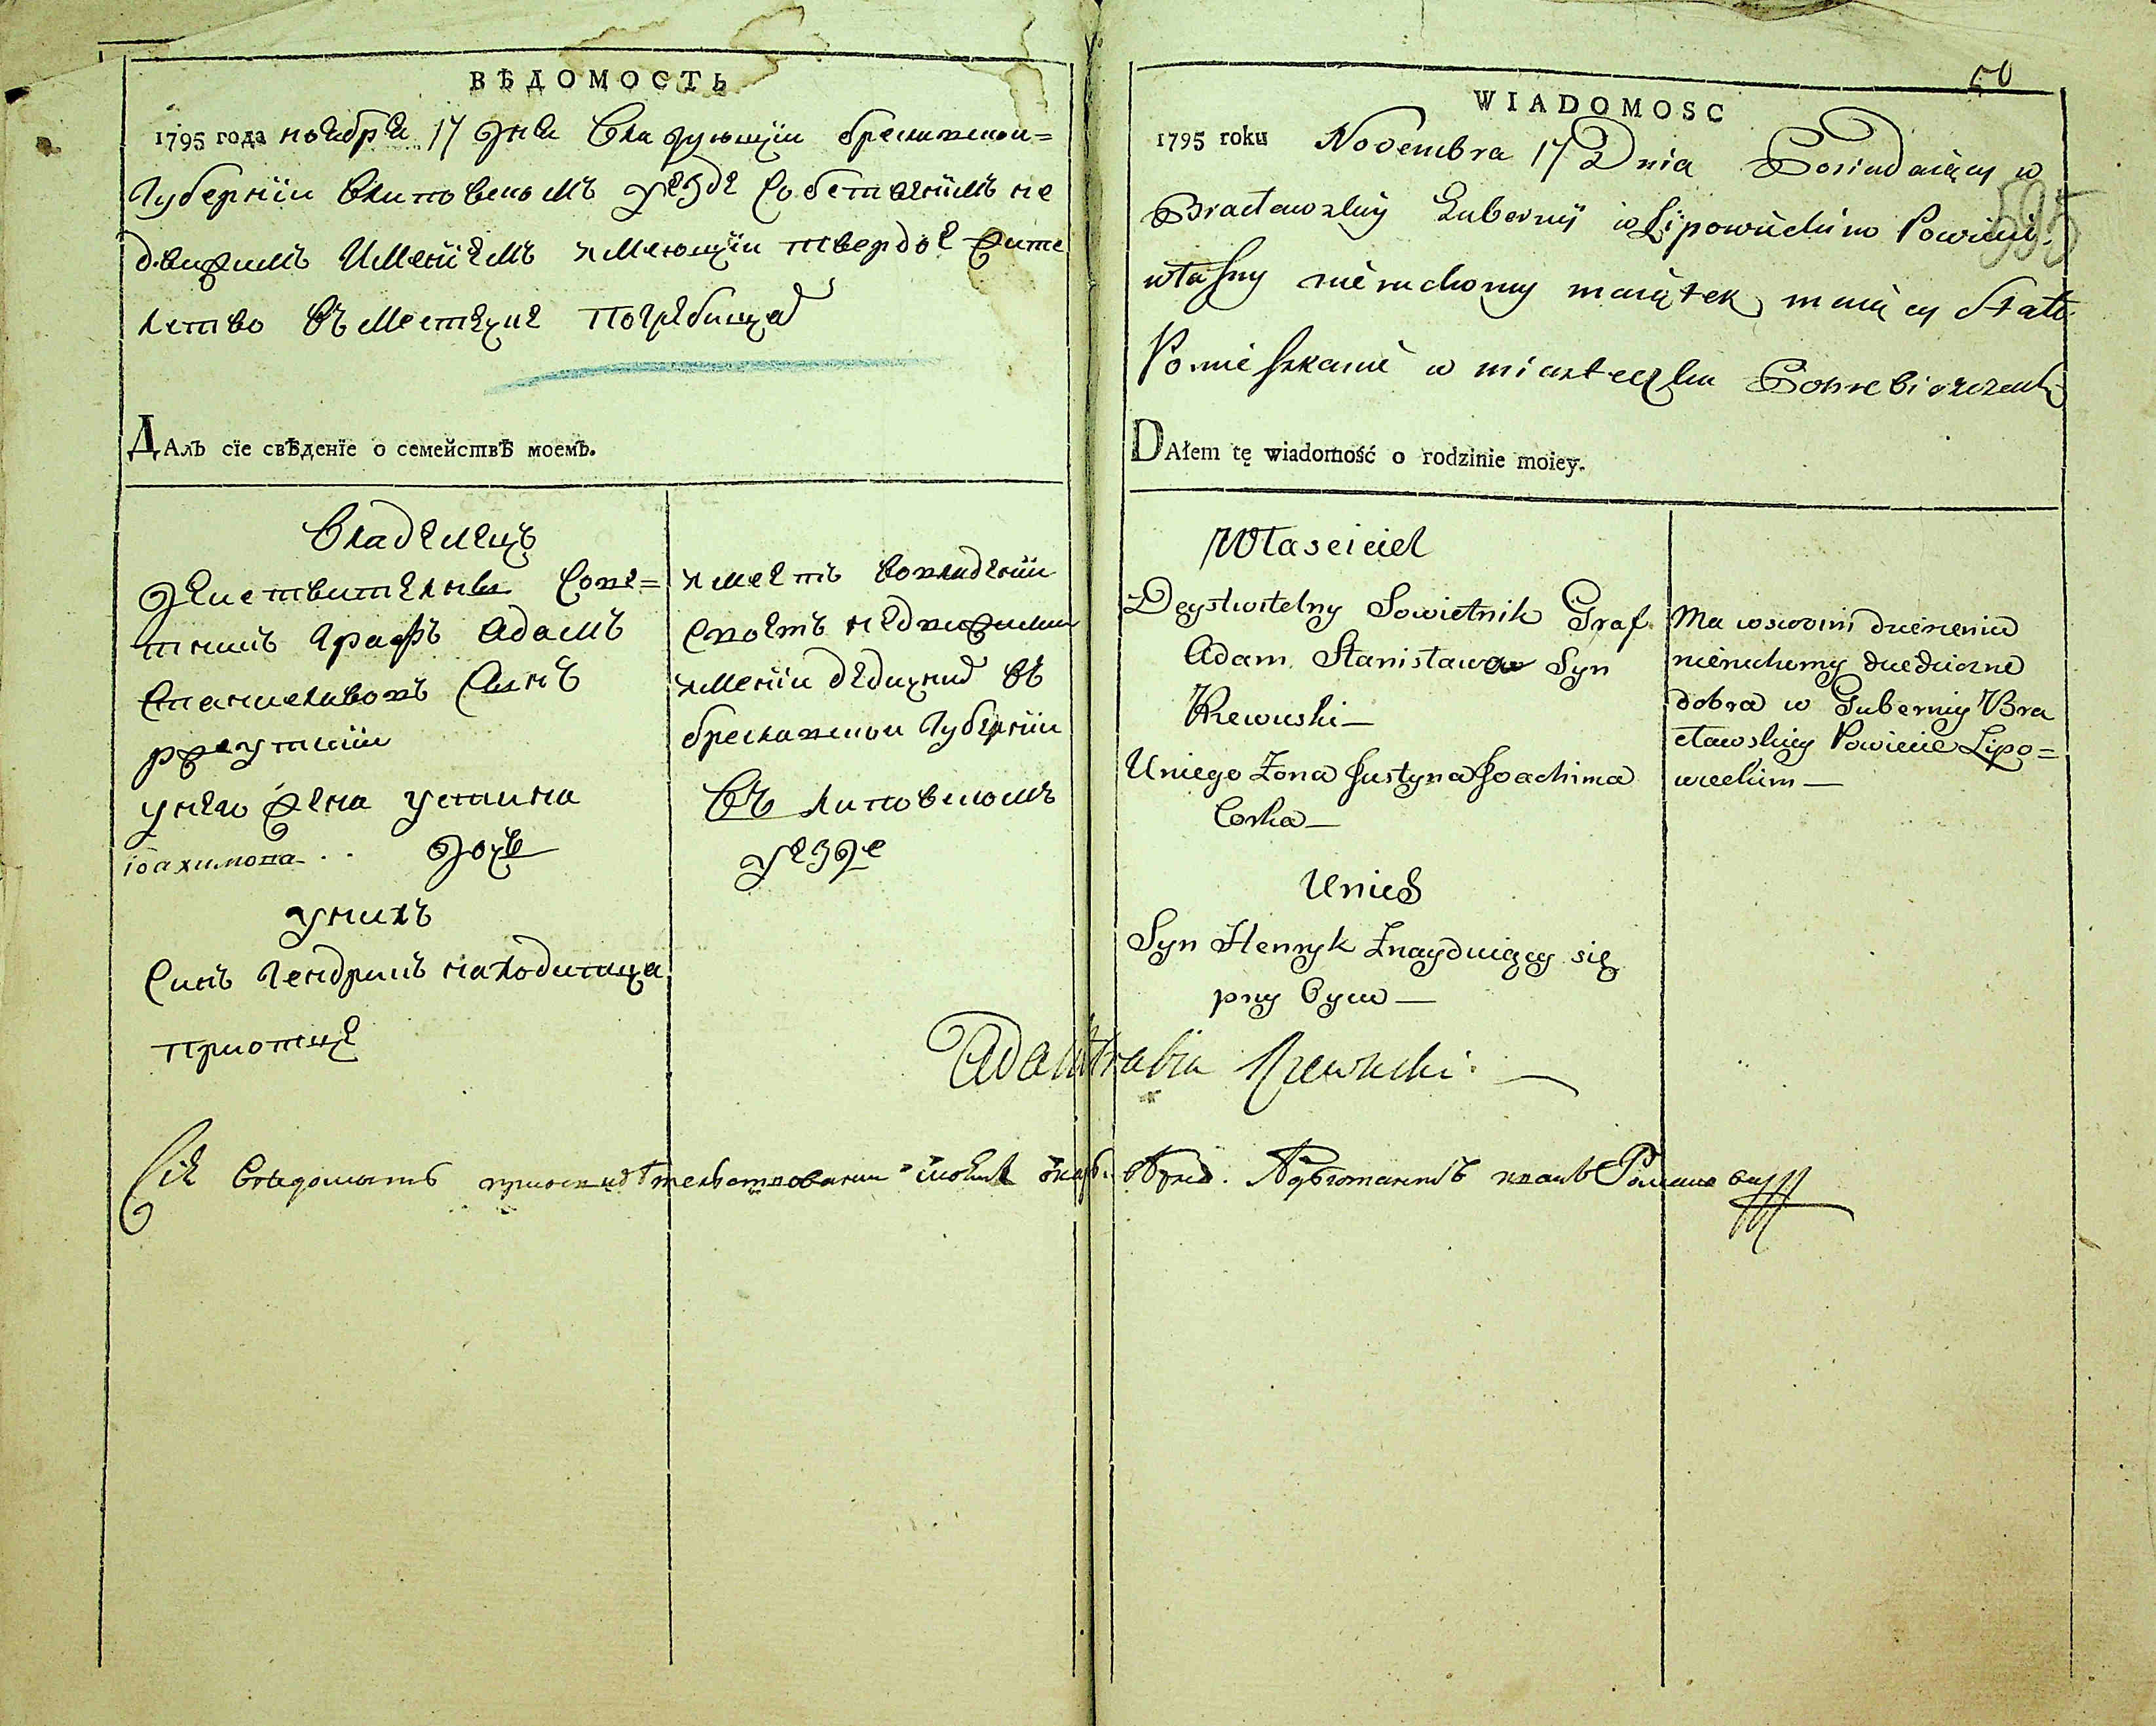 ВѢДОМОСТЬ
1795 года ноября 17 дня Владующїи бреславскои=
Губернїи влиповецкомъ уезде собственнимъ не
движимъ имениемъ имеющїи твердое жите
лство въ местечке погребища
ДАлъ сїе свѣденїе о семействѣ моемъ.
Владелецъ
Действителни Сове=
тникъ Графъ Адамъ
Станиславовъ Синъ
ржевуткїи
унего жена устина
іоахимова .. дочь
унихъ
Синъ Гендрикъ находитца
приотце
имеетъ вовладенїи
своемъ недвижими
имении дедичнив въ
бреславскои Губернїи
Въ липовецкомъ
уезде
50
WIADOMOSC
595
1795 roku Novembra 17 Dnia Posiadaiący w
Bracławskiy Guberniÿ w Lipowieckim Powiecie
własny nieruchomy maiątek maiący Stałe
Pomieszkanie w miasteczku Pohrebiszczach
DAłem tę wiadomość o rodzinie moiey.
Własciciel
Deystwitelny Sowietnik Graf
Adam Stanisławow Syn
Rzewuski —
Uniego Żona Justyna Joachima
Corka —
Unich
Syn Henryk Znayduiący się
przy Oycu —
Ma wswoim dzierzeniu
nieruchomy dziedziczne
dobra w Guberniy Bra
cławskiey Powiecie Lipo=
wieckim —
Adam Hrabia Rzewuski. —
Сія Ведомость